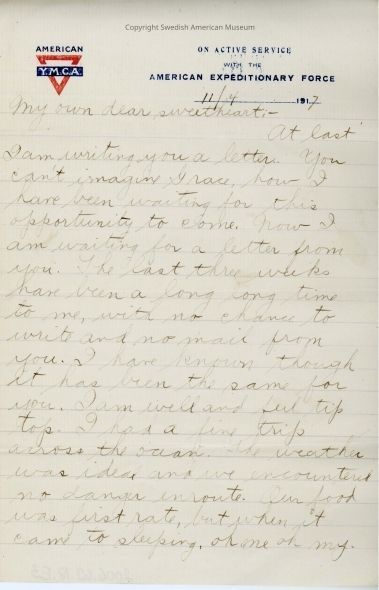 Copyright Swedish American Museum
AMERICAN
Y.M.C.A.
ON ACTIVE SERVICE
WITH THE
AMERICAN EXPEDITIONARY FORCE
11/4 1917
My own dear sweetheart:-
At last
I am writing you a letter. You
can't imagine Grace, how I
have been waiting for this
opportunity to come. Now I
am waiting for a letter from
you. The last three weeks
have been a long long time
to me, with no chance to
write and no mail from
you. I have known though
it has been the same for
you. I am well and feel tip
top. I had a fine trip
across the ocean. The weather
was ideal and we encountered
no danger in route. Our food
was first rate, but when it
came to sleeping, oh me oh my.